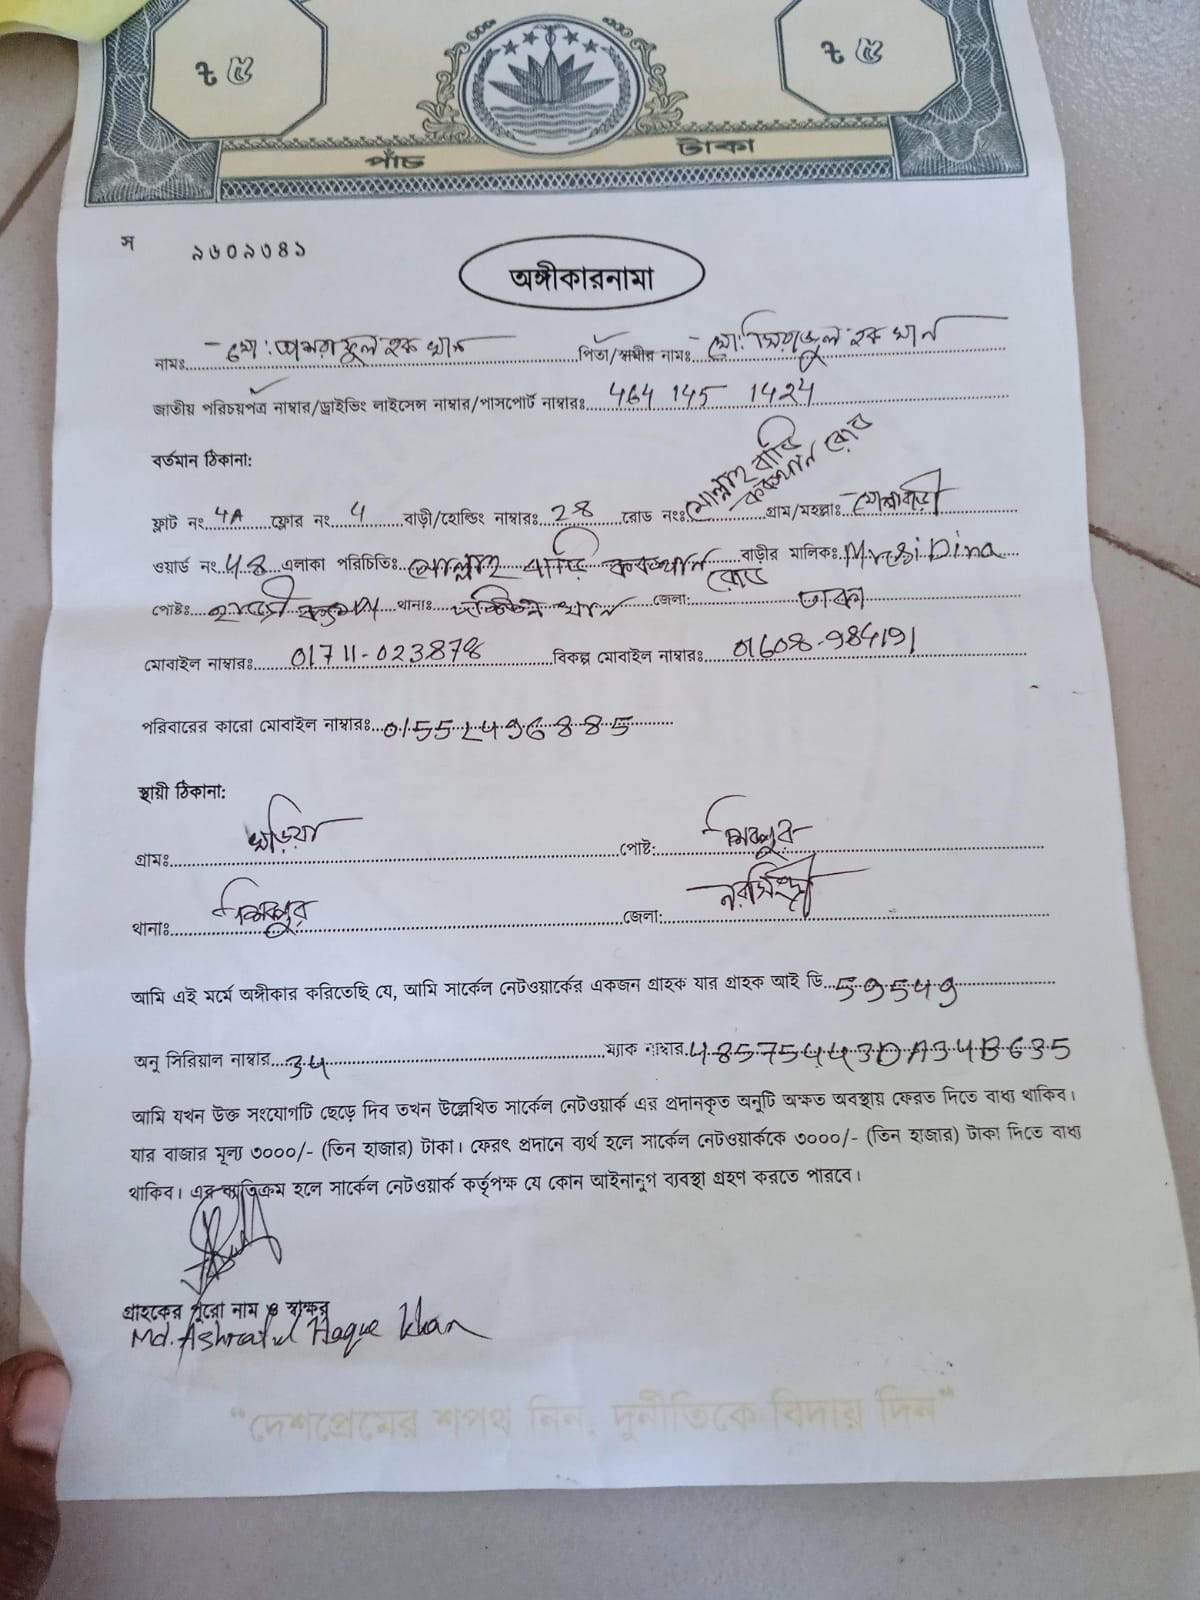 ৳ ৫ ৳ ৫
পাঁচ টাকা
স ৯৬০৯৩৪৯
অঙ্গীকারনামা
নামঃ মো: আশরাফুল হক খান পিতা/স্বামীর নামঃ মো: সিরাজুল হক খান
জাতীয় পরিচয়পত্র নাম্বার/ড্রাইভিং লাইসেন্স নাম্বার/পাসপোর্ট নাম্বারঃ 464 145 1424
বর্তমান ঠিকানা:
ফ্লাট নং 4A ফ্লোর নং 4 বাড়ী/হোল্ডিং নাম্বারঃ 28 রোড নংঃ মোল্লাহ বাড়ি কবরস্থান রোড গ্রাম/মহল্লাঃ মোল্লাবাড়ী
ওয়ার্ড নং 48 এলাকা পরিচিতিঃ মোল্লাহ বাড়ি কবরস্থান রোড বাড়ীর মালিকঃ Dina
পোষ্টঃ থানাঃ দক্ষিন খান জেলা: ঢাকা
মোবাইল নাম্বারঃ 01711-023878 বিকল্প মোবাইল নাম্বারঃ 01608-984191
পরিবারের কারো মোবাইল নাম্বারঃ 01552496885
স্থায়ী ঠিকানা:
গ্রামঃ খড়িয়া পোষ্ট: শিবপুর
থানাঃ শিবপুর জেলা: নরসিংদী
আমি এই মর্মে অঙ্গীকার করিতেছি যে, আমি সার্কেল নেটওয়ার্কের একজন গ্রাহক যার গ্রাহক আই ডি 59549
অনু সিরিয়াল নাম্বার 34 ম্যাক নাম্বার 485754430A34B635
আমি যখন উক্ত সংযোগটি ছেড়ে দিব তখন উল্লেখিত সার্কেল নেটওয়ার্ক এর প্রদানকৃত অনুটি অক্ষত অবস্থায় ফেরত দিতে বাধ্য থাকিব।
যার বাজার মূল্য ৩০০০/- (তিন হাজার) টাকা। ফেরৎ প্রদানে ব্যর্থ হলে সার্কেল নেটওয়ার্ককে ৩০০০/- (তিন হাজার) টাকা দিতে বাধ্য
থাকিব। এর ব্যতিক্রম হলে সার্কেল নেটওয়ার্ক কর্তৃপক্ষ যে কোন আইনানুগ ব্যবস্থা গ্রহণ করতে পারবে।
গ্রাহকের পুরো নাম ও স্বাক্ষর
Md. Ashraful Haque Khan
“দেশপ্রেমের শপথ নিন, দুর্নীতিকে বিদায় দিন”